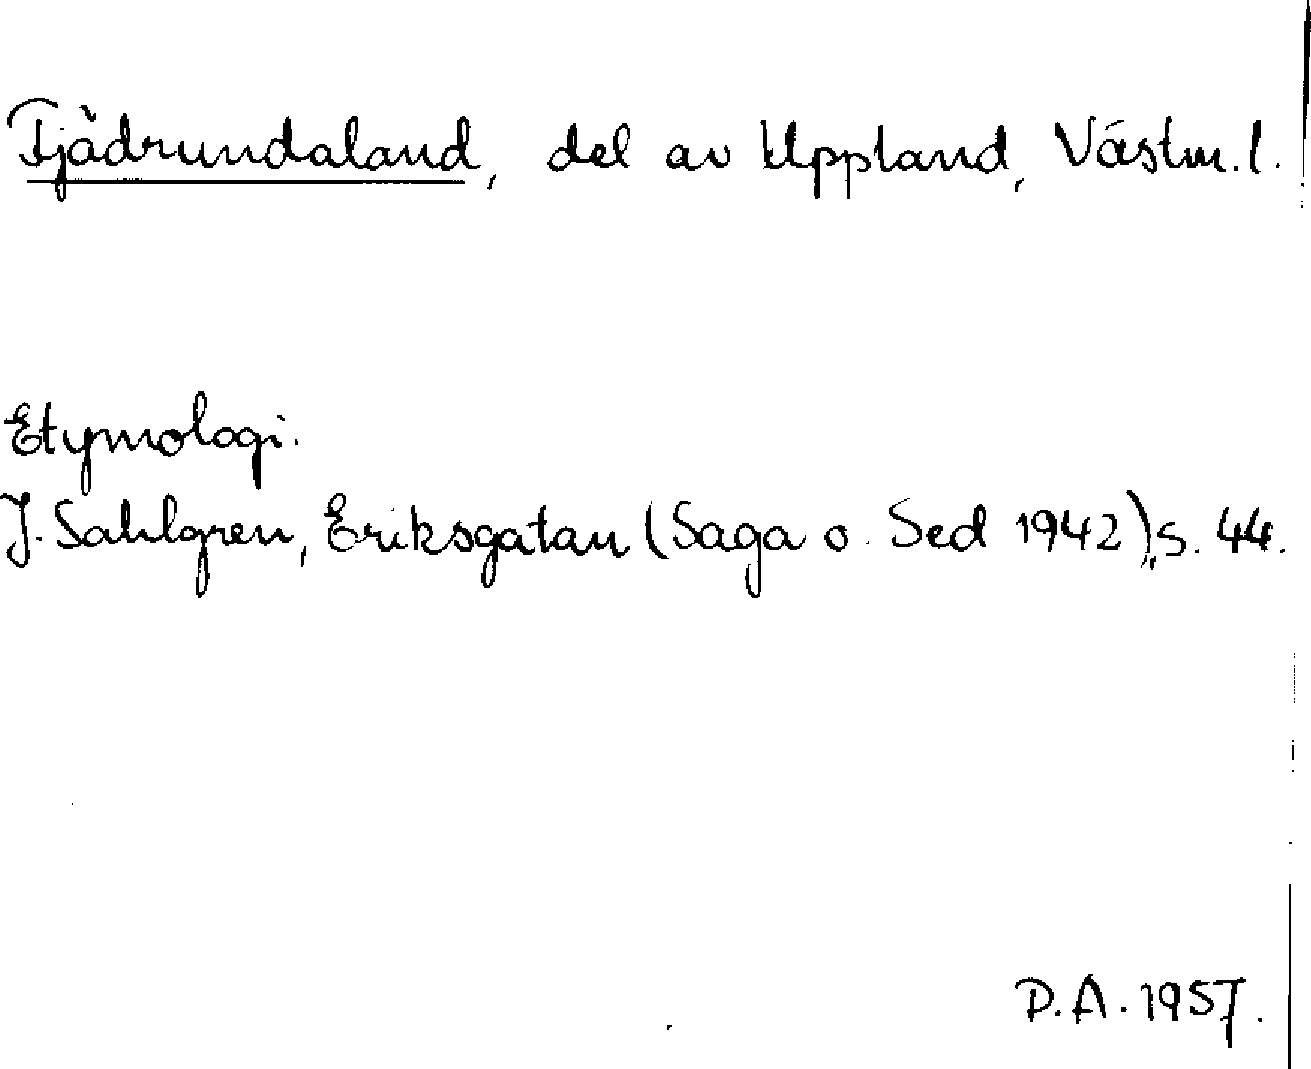 Fjädrundaland, del av Uppland, Västm.l.
Etymologi.
J. Sahlgren, Eriksgatan (Saga o. Sed 1942), s. 44.
D.A. 1957.